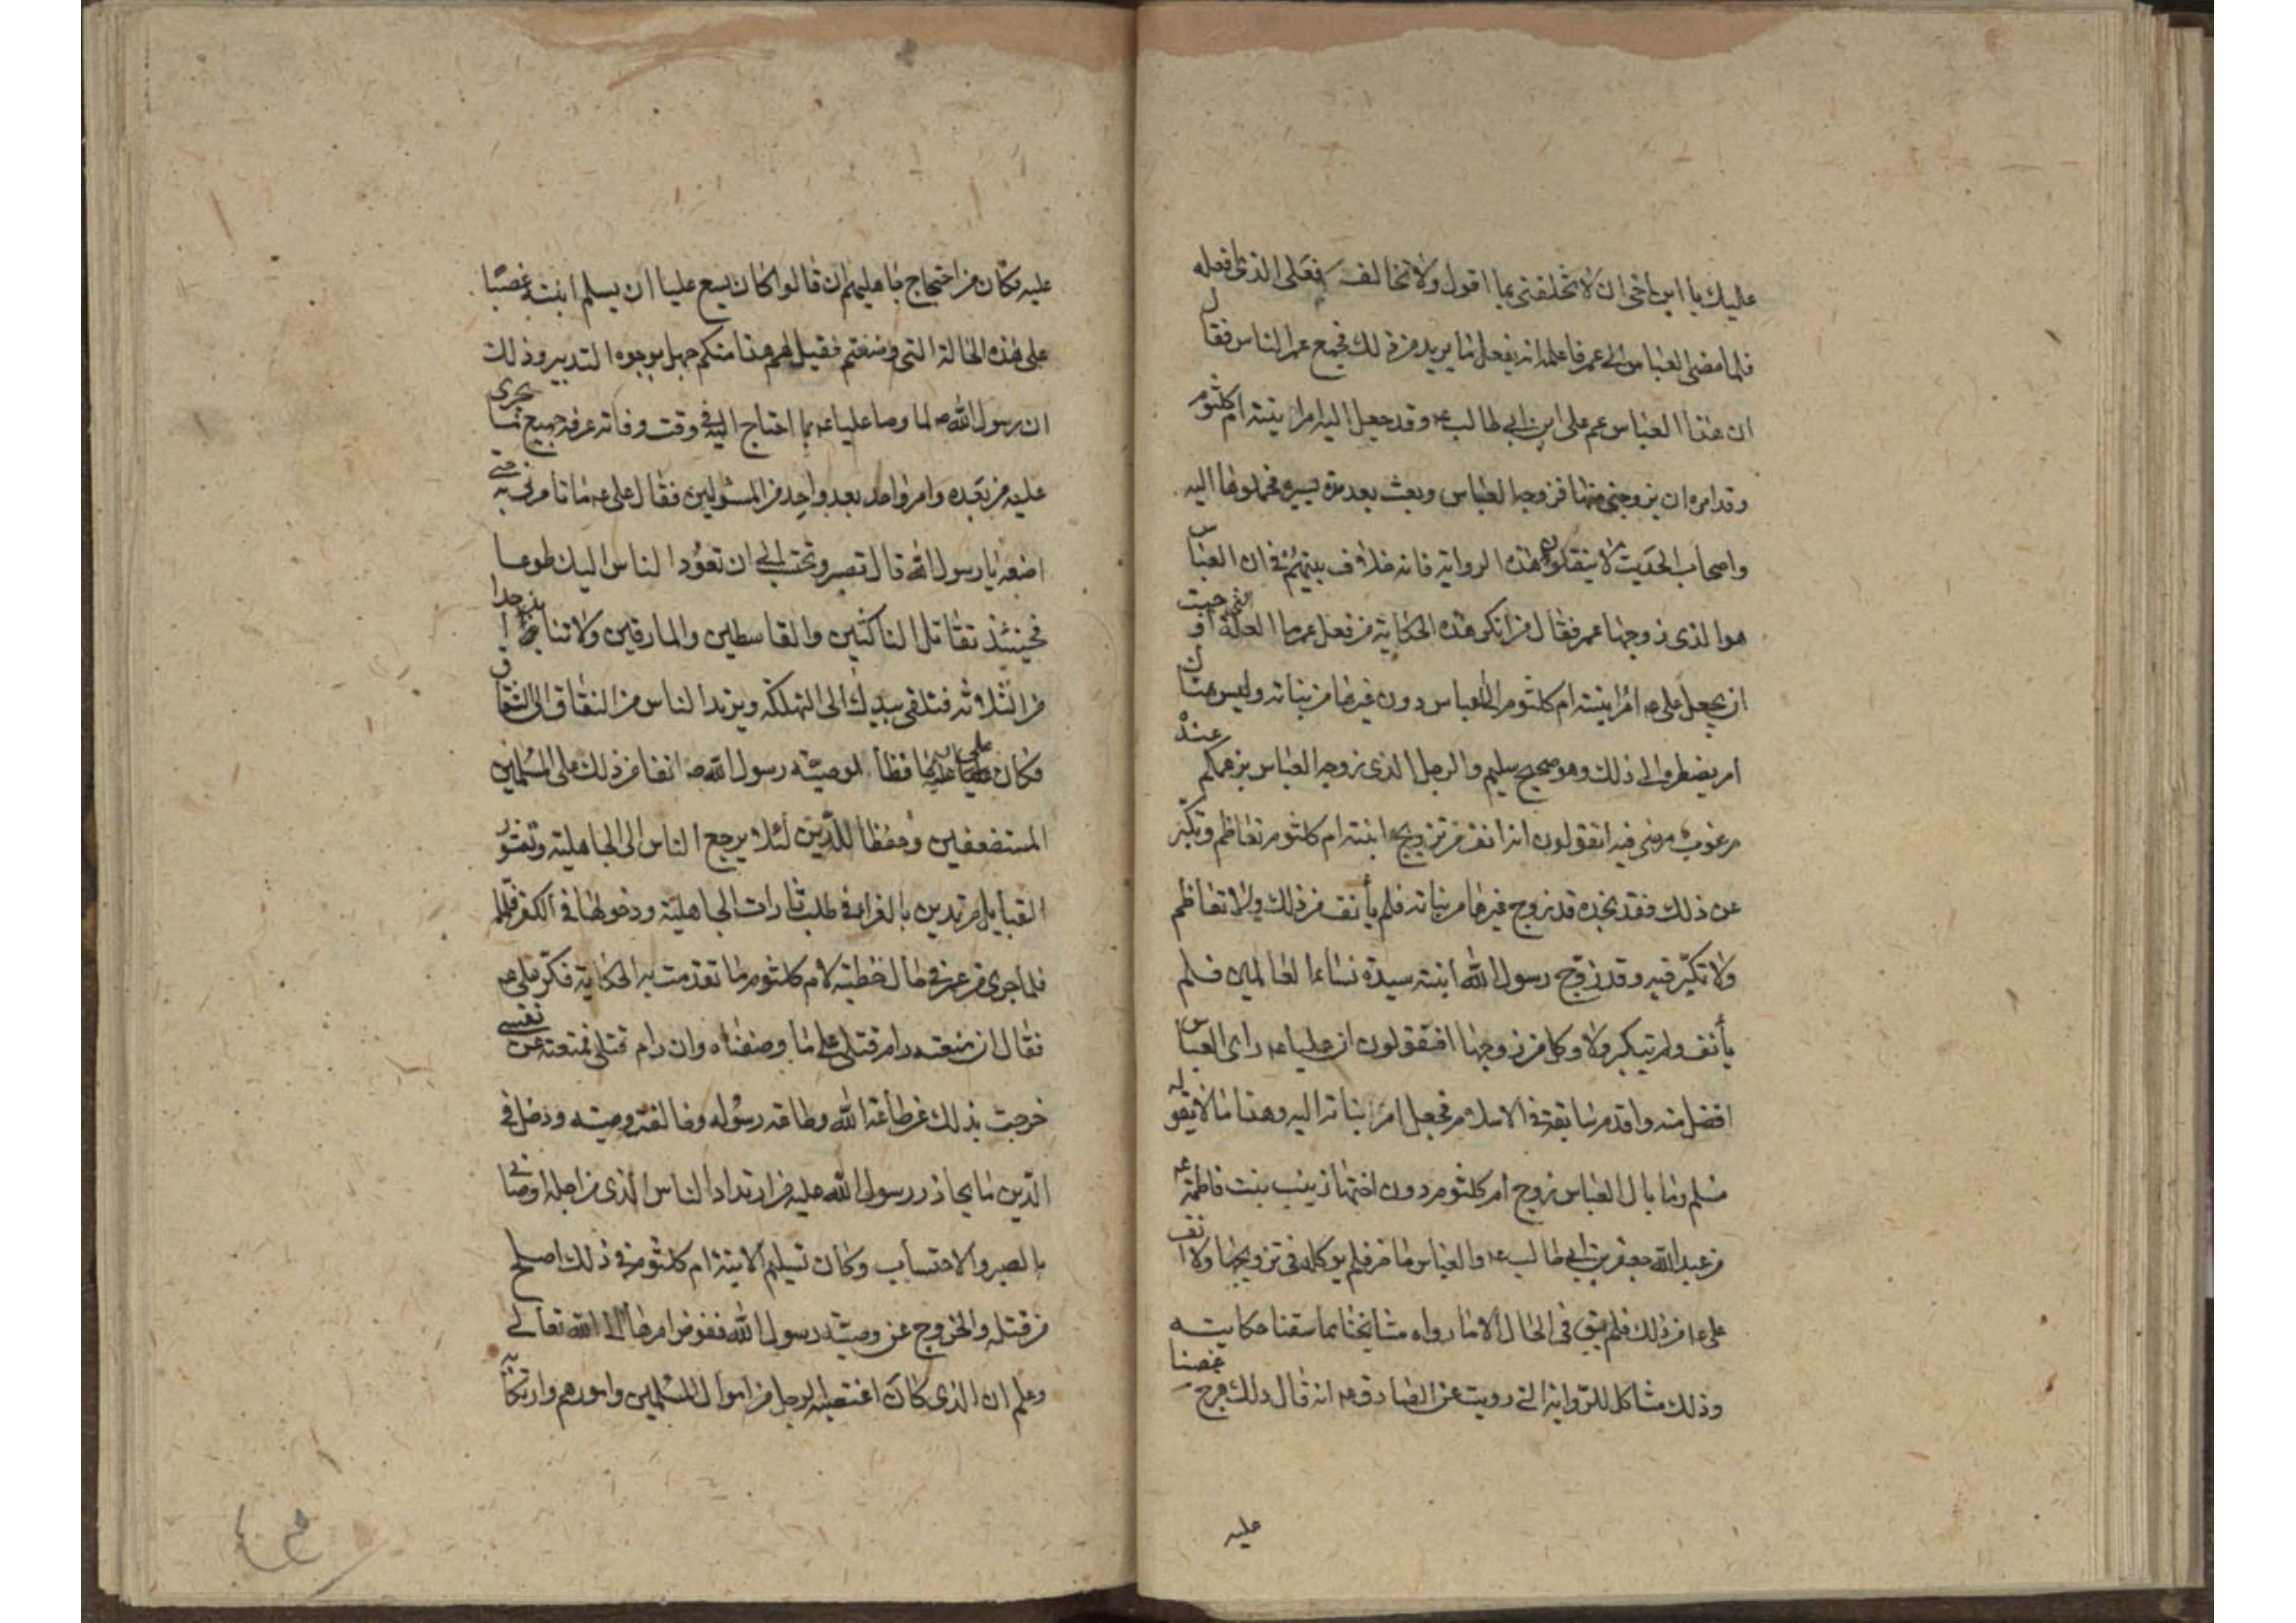 عليك يا ابن اخي ان لا تخلفني بما اقول ولا تخالف فعلي الذي افعله
فلما مضى العباس الى عمر فاعلمه انه يفعل ما يريد من ذلك فجمع عمر الناس فقال
ان هذا العباس عم علي ابن ابي طالب ع وقد جعل اليه امر ابنته ام كلثوم
وقد امره ان يزوجني منها فزوجه العباس وبعث بعد مدة يسيرة فحملوها اليه
واصحاب الحديث لا ينقلون هذه الرواية فانه خلاف بينهم في ان العباس
هو الذي زوجها عمر فقال من انكر هذه الحكاية من فعل عمر ما العلة التي اوجبت
ان يجعل علي ع امر ابنته ام كلثوم الى العباس دون غيرها من بناته وليس هناك
امر يضطره الى ذلك وهو صحيح سليم والرجل الذي زوجه العباس بزعمكم عنده
مرغوب مرضي فيه اتقولون انه انف من تزويج ابنته ام كلثوم وتعاظم وتكبر
عن ذلك فقد نجده قد زوج غيرها من بناته فلم يأنف من ذلك ولا تعاظم
ولا تكبر فيه وقد زوج رسول الله ابنته سيدة نساء العالمين فلم
يأنف ولم يتكبر ولا وكل من زوجها افتقولون ان عليا ع راى العباس
افضل منه واقدم سابقة في الاسلام فجعل امر بناته اليه وهذا ما لا يقوله
مسلم وما بال العباس زوج ام كلثوم دون اختها زينب بنت فاطمة ع
من عبد الله جعفر بن ابي طالب ع والعباس حاضر فلم يوكله في تزويجها ولا انف
علي ع من ذلك فلم يبق في الحال الا ما رواه مشايخنا بما سقنا حكايته
وذلك مشاكل للرواية التي رويت عن الصادق ع انه قال ذلك فرج غصبنا
عليه
عليه فكان من احتجاج جاهليهم ان قالوا اكان يسع عليا ان يسلم ابنته غصبًا
على هذه الحالة التي وصفتم فقيل لهم هذا منكم جهل بوجوه التدبير وذلك
ان رسول الله ص لما وصا عليا ع بما احتاج اليه في وقت وفاته عرفه جميع ما يجري
عليه من بعده وامر واحد بعد واحد من المستولين فقال علي ع ما تامرني به حتى
اصنعه يا رسول الله قال تصبر وتحتسب الى ان تعود الناس اليك طوعا
فحينئذ تقاتل الناكثين والقاسطين والمارقين ولا تنابذ احدا
من الثلاثة فتلقى بيديك الى التهلكة ويرتد الناس من النفاق الى الشقاق
فكان علي ع حافظا لوصية رسول الله ص انفا من ذلك على المسلمين
المستضعفين وحفظا للدين لئلا يرجع الناس الى الجاهلية وتثور
القبايل مرتدين بالغرام في طلب ثارات الجاهلية ودخولها في الكفر
فلما جرى من عمر في حال خطبته لام كلثوم ما تقدمت به الحكاية فكر علي ع
فقال ان منعته رام قتلي على ما وصفناه وان رام قتلي فمنعته عن نفسي
خرجت بذلك عن طاعة الله وطاعة رسوله وخالفت وصيته ودخل في
الدين ما يحاذر رسول الله عليه من ارتداد الناس الذي من اجله اوصاني
بالصبر والاحتساب وكان تسليم الابنة ام كلثوم في ذلك اصلح
من قتله والخروج عن وصية رسول الله ففوض امرها الى الله تعالى
وعلم ان الذي كان اغتصبه الرجل من اموال المسلمين وامورهم وارتكابه